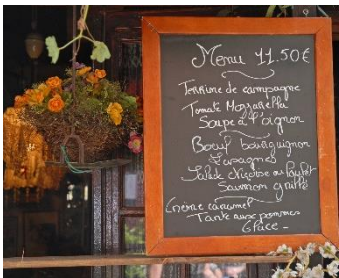 Menu 11.50€
Terrine de campagne
Tomate Mozzarella
Soupe à l'oignon
Bœuf bourguignon
Lasagnes
Salade niçoise ou Poulet
Saumon grillé
Crème caramel
Tarte aux pommes
Glace -